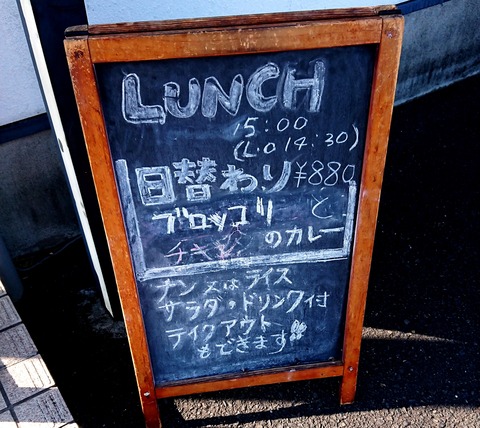 LUNCH
15:00
(L.O 14:30)
日替わり ¥880
ブロッコリーと
チキンのカレー
ナン又はライス
サラダ・ドリンク付
テイクアウト
もできます